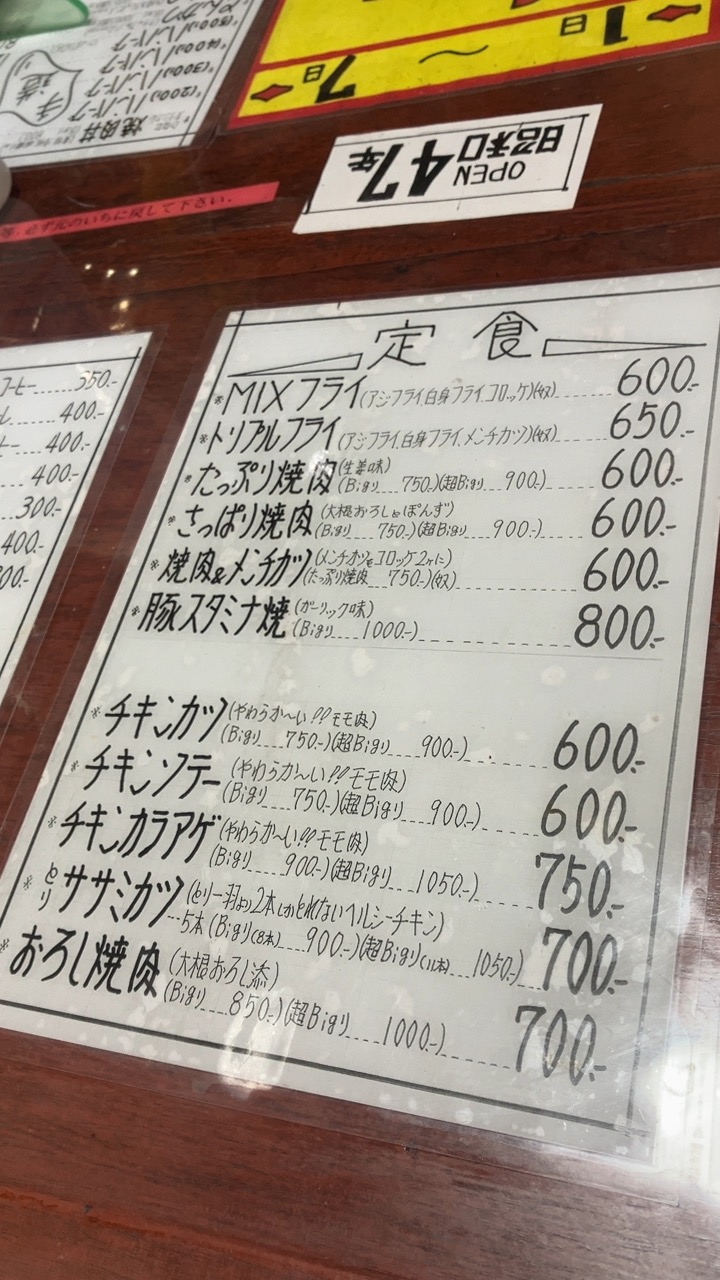 1日
～
7日
OPEN
昭和47年
手造
焼肉丼
(200g)ハンバーグ
(300g)ハンバーグ
(400g)ハンバーグ
(500g)ハンバーグ
必ず元のいちに戻して下さい.
コーヒー......350.-
400.-
400.-
400.-
300.-
400.-
定食
※MIXフライ(アジフライ.白身フライ.コロッケ)(奴) 600.-
※トリプルフライ(アジフライ.白身フライ.メンチカツ)(奴) 650.-
※たっぷり焼肉(生姜味) 600.-
(Bigり 750.-)(超Bigり 900.-)
※さっぱり焼肉(大根おろしとぽんず) 600.-
(Bigり 750.-)(超Bigり 900.-)
※焼肉&メンチカツ(メンチカツをコロッケ2ケに) 600.-
(たっぷり焼肉 750.-)(奴)
※豚スタミナ焼(ガーリック味) 800.-
(Bigり 1000.-)
※チキンカツ(やわらか〜い!!モモ肉) 600.-
(Bigり 750.-)(超Bigり 900.-)
※チキンソテー(やわらか〜い!!モモ肉) 600.-
(Bigり 750.-)(超Bigり 900.-)
※チキンカラアゲ(やわらか〜い!!モモ肉) 750.-
(Bigり 900.-)(超Bigり 1050.-)
※とりササミカツ(とり一羽より2本しかとれないヘルシーチキン) 700.-
5本(Bigり(8本) 900.-)(超Bigり(11本) 1050.-)
※おろし焼肉(大根おろし添) 700.-
(Bigり 850.-)(超Bigり 1000.-)